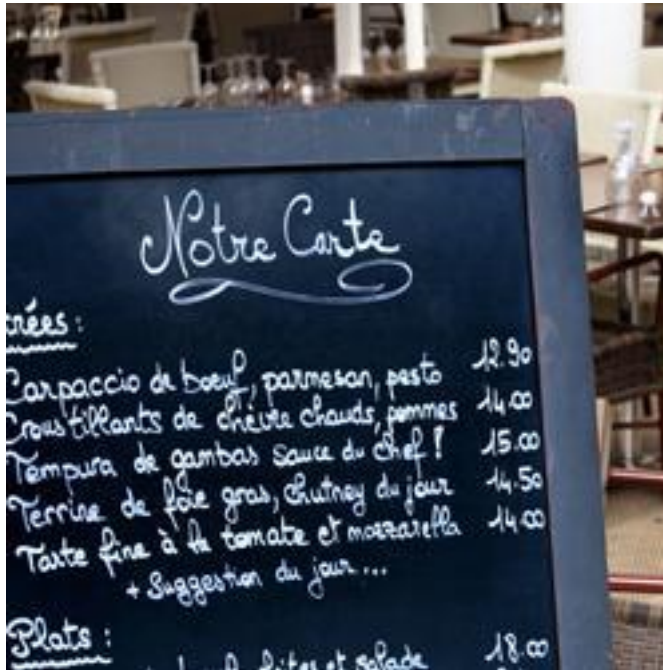 Notre Carte
trées :
Carpaccio de boeuf, parmesan, pesto 12.90
Croustillants de chèvre chauds, pommes 14.00
Tempura de gambas sauce du chef ! 15.00
Terrine de foie gras, chutney du jour 14.50
Tarte fine à la tomate et mozzarella 14.00
+ Suggestion du jour...
Plats :
frites et salade 18.00